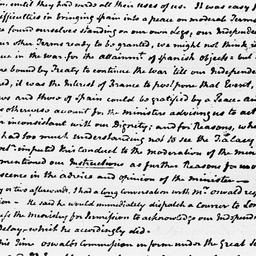 until they had made all their uses of us. It was easy
difficulties in bringing Spain into a peace on moderate Terms
found ourselves standing on our own Legs, our Independ
our other Terms ready to be granted, we might not think it
in the war for the attainment of Spanish Objects - but
bound by Treaty to continue the war till our Independ
it was the Interest of France to postpone that Event,
and those of Spain could be gratified by a Peace - and
otherwise account for the minister advising us to act
inconsistent with our Dignity; and for Reasons, wh
had too much understanding not to see the Falacy
imputed this Conduct to the moderation of the min
mentioned our Instructions as further Reasons for our
acquiescence in the advice and opinion of the minister -
or two afterwards, I had a long Conversation with Mr. Oswald resp
- He said he would immediately dispatch a Courier to Lon
the ministry for permission to acknowledge our Independ
Delay, which he accordingly did. -
this Time Oswalds Commission in form under the Great S